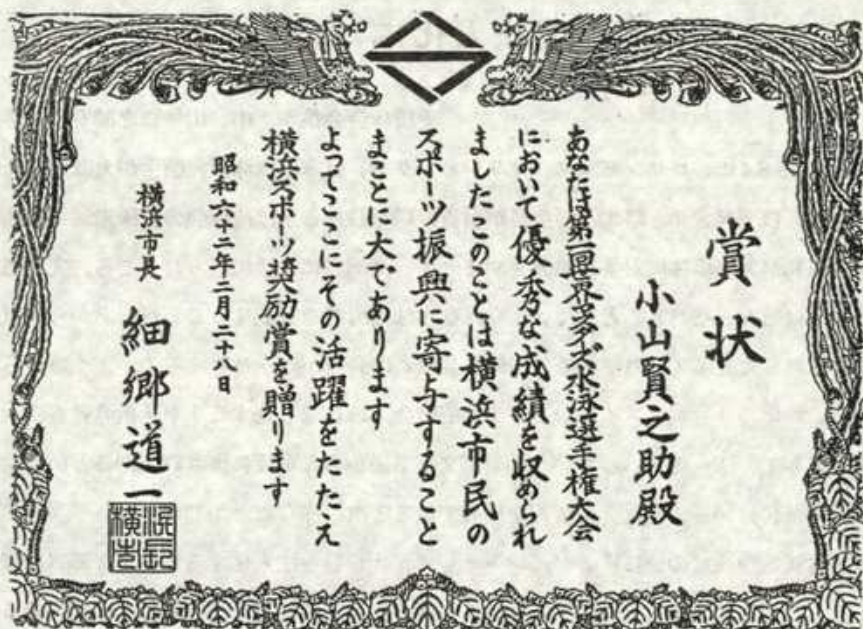 賞状
小山賢之助殿
あなたは第一回世界マスターズ水泳選手権大会
において優秀な成績を収められ
ましたこのことは横浜市民の
スポーツ振興に寄与すること
まことに大であります
よってここにその活躍をたたえ
横浜スポーツ奨励賞を贈ります
昭和六十二年二月二十八日
横浜市長 細郷道一